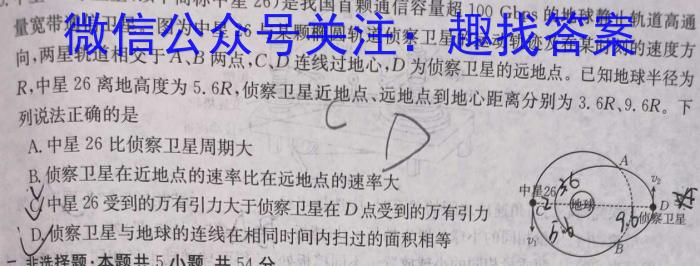 中星 26)是我国首颗通信容量超 100 Gbps 的地球静止轨道高通
量宽带
微信公众号关注：趣找答案
的速度方
向,两星轨道相交于 A、B 两点,C、D 连线过地心,D 为侦察卫星的远地点。已知地球半径为
R,中星 26 离地高度为 5.6R,侦察卫星近地点、远地点到地心距离分别为 3.6R、9.6R。下
列说法正确的是
A.中星 26 比侦察卫星周期大
B.侦察卫星在近地点的速率比在远地点的速率大
中星 26 受到的万有引力大于侦察卫星在 D 点受到的万有引力
D.侦察卫星与地球的连线在相同时间内扫过的面积相等
C
D
A
中星26
3.6
v₂
C
地球
D
侦察卫星
9.6
v₁
5.6
B
二、非选择题:本题共 5 小题,共 54 分